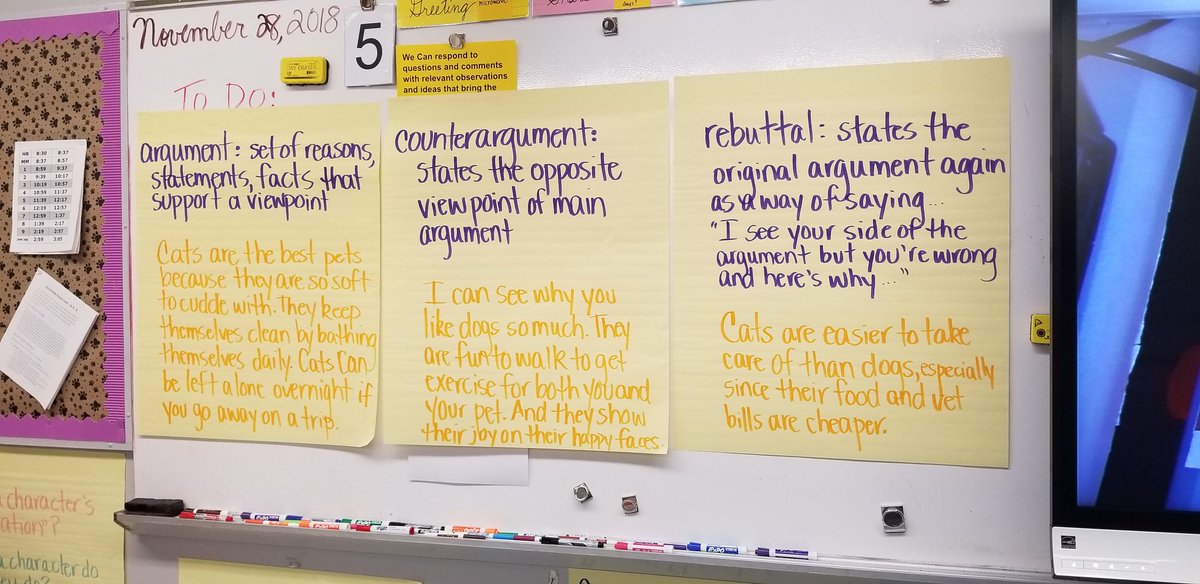 November 28, 2018
5
Greeting
We Can respond to
questions and comments
with relevant observations
and ideas that bring the
To Do:
argument: set of reasons,
statements, facts that
support a viewpoint
Cats are the best pets
because they are so soft
to cuddle with. They keep
themselves clean by bathing
themselves daily. Cats can
be left alone overnight if
you go away on a trip.
counterargument:
states the opposite
viewpoint of main
argument
I can see why you
like dogs so much. They
are fun to walk to get
exercise for both you and
your pet. And they show
their joy on their happy faces.
rebuttal: states the
original argument again
as a way of saying...
"I see your side of the
argument but you're wrong
and here's why..."
Cats are easier to take
care of than dogs, especially
since their food and vet
bills are cheaper.
HR 8:30 8:37
MM 8:37 8:57
1 8:59 9:37
2 9:39 10:17
3 10:19 10:57
4 10:59 11:37
5 11:39 12:17
6 12:19 12:57
7 12:59 1:37
8 1:39 2:17
9 2:19 2:57
2:59 3:05
a character's
a character do